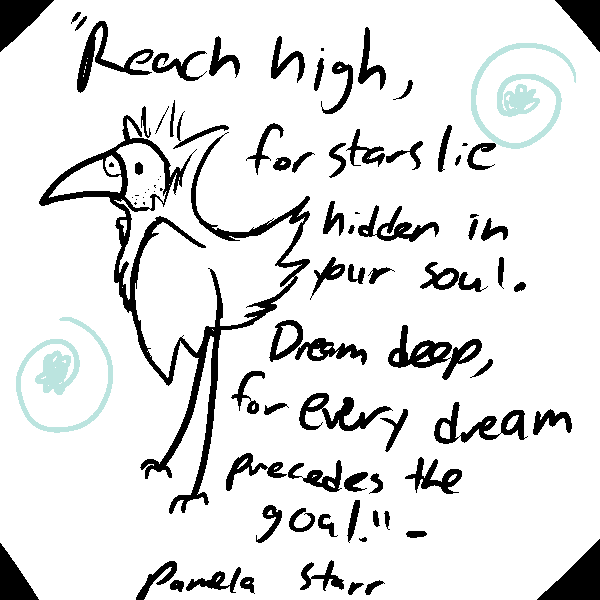 "Reach high,
for stars lie
hidden in
your soul.
Dream deep,
for every dream
precedes the
goal." -
Pamela Starr